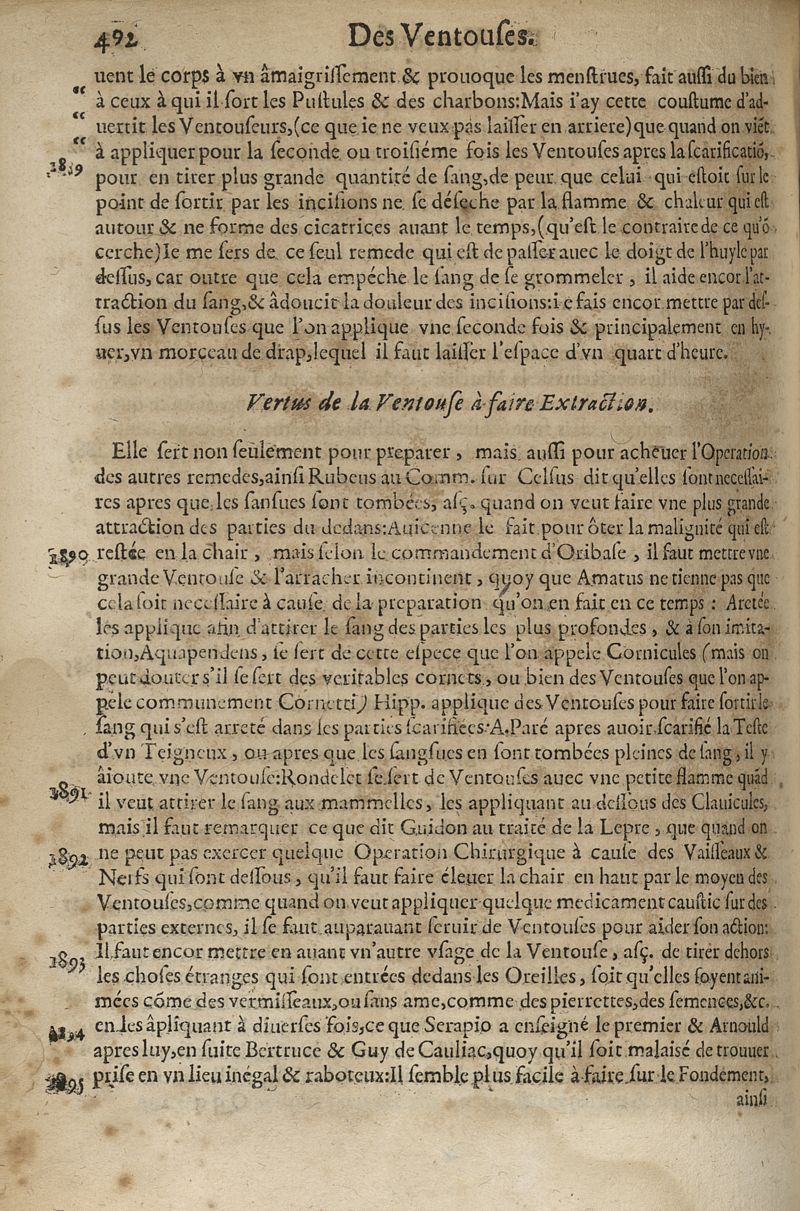 492
Des Ventouſes.
uent le corps à vn âmaigriſſement & prouoque les menſtrues, fait auſſi du bien
“ à ceux à qui il ſort les Puſtules & des charbons:Mais i'ay cette couſtume d'ad-
“ uertit les Ventouſeurs,(ce que ie ne veux pas laiſſer en arriere)que quand on viẽt
“ à appliquer pour la ſeconde ou troiſiéme fois les Ventouſes apres la ſcarificatiõ,
pour en tirer plus grande quantité de ſang,de peur que celui qui eſtoit ſur le
point de ſortir par les inciſions ne ſe déſeche par la flamme & chaleur qui eſt
autour & ne forme des cicatrices auant le temps,(qu'eſt le contraire de ce qu'õ
cerche)Ie me ſers de ce ſeul remede qui eſt de paſſer auec le doigt de l'huyle par
deſſus, car outre que cela empéche le ſang de ſe grommeler , il aide encor l'at-
traction du ſang,& âdoucit la douleur des inciſions:ie fais encor mettre par deſ-
ſus les Ventouſes que l'on applique vne ſeconde fois & principalement en hy-
uer,vn morceau de drap,lequel il faut laiſſer l'eſpace d'vn quart d'heure.
Vertus de la Ventouſe à faire Extraction.
Elle ſert non ſeulement pour preparer , mais auſſi pour acheuer l'Operation
des autres remedes,ainſi Rubeus au Comm. ſur Celſus dit qu'elles ſont neceſſai-
res apres que les ſanſues ſont tombées, aſç. quand on veut faire vne plus grande
attraction des parties du dedans:Auicenne le fait pour ôter la malignité qui eſt
3890 reſtée en la chair , mais ſelon le commandement d'Oribaſe , il faut mettre vne
grande Ventouſe & l'arracher incontinent , quoy que Amatus ne tienne pas que
cela ſoit neceſſaire à cauſe de la preparation qu'on en fait en ce temps : Aretée
les applique afin d'attirer le ſang des parties les plus profondes , & à ſon imita-
tion,Aquapendens, ſe ſert de cette eſpece que l'on appele Cornicules (mais on
peut douter s'il ſe ſert des veritables cornets, ou bien des Ventouſes que l'on ap-
pele communement Cornetti) Hipp. applique des Ventouſes pour faire ſortir le
ſang qui s'eſt arreté dans les parties ſcarifiées:A.Paré apres auoir ſcarifié la Teſte
d'vn Teigneux , ou apres que les ſangſues en ſont tombées pleines de ſang, il y
âioute vne Ventouſe:Rondelet ſe ſert de Ventouſes auec vne petite flamme quãd
3891 il veut attirer le ſang aux mammelles, les appliquant au deſſous des Clauicules,
mais il faut remarquer ce que dit Guidon au traité de la Lepre , que quand on
3892 ne peut pas exercer quelque Operation Chirurgique à cauſe des Vaiſſeaux &
Nerfs qui ſont deſſous , qu'il faut faire éleuer la chair en haut par le moyen des
Ventouſes,comme quand on veut appliquer quelque medicament cauſtic ſur des
parties externes, il ſe faut auparauant ſeruir de Ventouſes pour aider ſon action:
3893 Il faut encor mettre en auant vn'autre vſage de la Ventouſe , aſç. de tirer dehors
les choſes étranges qui ſont entrées dedans les Oreilles, ſoit qu'elles ſoyent ani-
mées cõme des vermiſſeaux,ou ſans ame,comme des pierrettes,des ſemences,&c.
en les âpliquant à diuerſes fois,ce que Serapio a enſeigné le premier & Arnould
apres luy,en ſuite Bertruce & Guy de Cauliac,quoy qu'il ſoit malaisé de trouuer
priſe en vn lieu inégal & raboteux:Il ſemble plus facile à faire ſur le Fondement,
ainſi